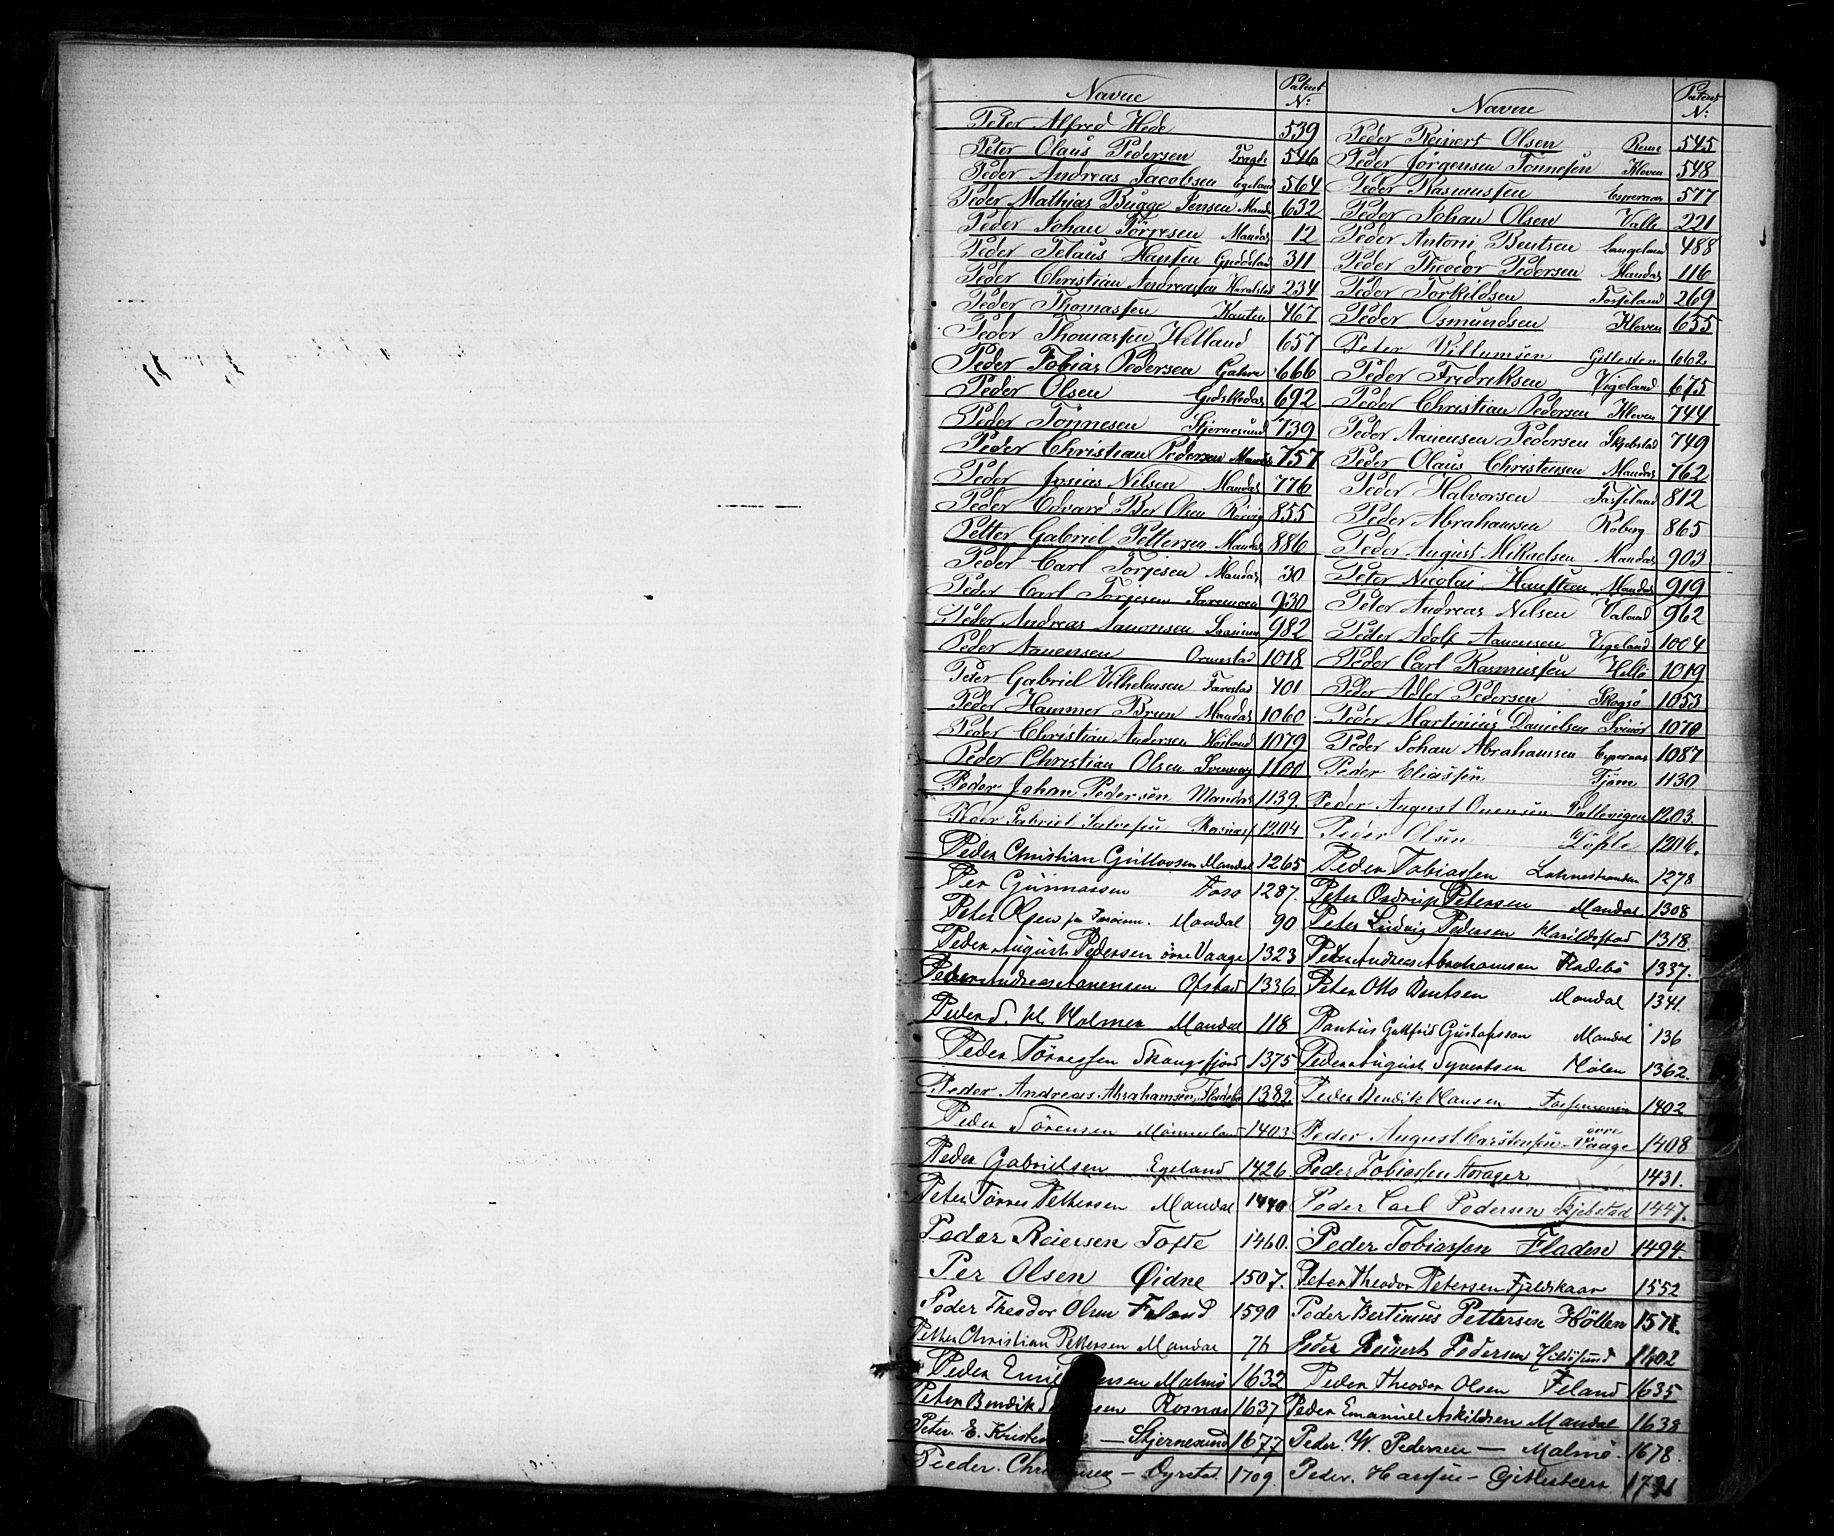 Navne Patent N: Navne Patent N:
Peter Alfred Hede 539 Peder Reinert Olsen Rene 545
Peter Olaus Pedersen 546 Peder Jørgensen Tønnesen Kleven 548
Peder Andreas Jacobsen Egeland 564 Peder Rasmussen 577
Peder Mathias Bugge Jensen Mandal 632 Peder Johan Olsen Valle 221
Peder Johan Tørjesen Mandal 12 Peder Antoni Bentsen Langeland 488
Peder Hansen 311 Peder Theodor Pedersen Mandal 116
Peder Christian Andreassen Haralstad 234 Peder Torkildsen 269
Peder Thomassen 467 Peder Osmundsen Kleven 655
Peder Thomassen Helland 657 Peter Villumsen Gitlesten 662
Peder Tobias Pedersen 666 Peder Fredriksen Vigeland 675
Peder Olsen 692 Peder Christian Pedersen Kleven 744
Peder Tönnesen Stjernesund 739 Peder Aanensen Pedersen Skjebstad 749
Peder Christian Pedersen Mandal 757 Peder Olaus Christensen Mandal 762
Peder Josias Nilsen Mandal 776 Peder Halvorsen 812
Peder Edvard Ber Olsen Rørvig 855 Peder Abrahamsen Roberg 865
Petter Gabriel Pettersen Mandal 886 Peder August Mikaelsen Mandal 903
Peder Carl Torjesen Mandal 30 Peter Nicolai Hansteen Mandal 919
Peder Carl Torjesen 930 Peter Andreas Nilsen Valand 962
Peder Andreas Aanonsen 982 Peder Adolf Aanensen Vigeland 1004
Peder Aanensen Ormestad 1018 Peder Carl Rasmussen Hille 1019
Peter Gabriel Vilhelmsen Farestad 401 Peder Adler Pedersen Skogsø 1053
Peder Hammer Bruun Mandal 1060 Peder Martinius Danielsen Svinør 1070
Peder Christian Andersen Høiland 1079 Peder Johan Abrahamsen 1087
Peder Christian Olsen 1100 Peder Eliassen Tjøm 1130
Peder Johan Pedersen Mandal 1139 Peder August Ouensen Vallevigen 1203.
Peder Gabriel Salvesen 1204 Peder Olsen Löfte 1206.
Peder Christian Gullovsen Mandal 1265 Peder Tobiassen 1278
Per Gunnarsen Foss 1287. Peter Petersen Mandal 1308
Peter Olsen Mandal 90 Peter Ludvig Pedersen Harildstad 1318.
Peder August Pedersen øvre Vaage 1323 Peder Andreas Abrahamsen Fladebö 1337.
Peder Andreas Aanensen Ofstad 1336 Peter Otto Bentsen Mandal 1341.
Peder Holmer Mandal 118 Pontus Gottfrid Gustafsson Mandal 136
Peder Tørresen Skongsfjord 1375 Peder August Syvertsen Hölen 1362.
Peder Andreas Abrahamsen, Fladebö 1382 Peder Bendik Hansen 1402
Peder Sörensen Mönnesland 1403 Peder August Carstensen øvre Vaage 1408
Peder Gabrielsen Egeland 1426. Peder Tobiassen Storager 1431.
Peter Tørres Pettersen Mandal 1440 Peder Carl Pedersen Skjebstad 1447.
Peder Reiersen Tofte 1460. Peder Tobiassen 1494.
Per Olsen Øidne 1507. Peter Theodor Petersen Fjeldskaar 1552
Peder Theodor Olsen Feland 1590 Peder Bertinius Pettersen Höllen 1571.
Petter Christian Pettersen Mandal 76 Peder Reinert Pedersen Hildesund 1602
Peder Malmö 1632 Peder Theodor Olsen Feland 1635
Peter Bendik Rosnæs 1637 Peder Emanuel Askildsen Mandal 1638
Peter. E. — Stjernesund 1677 Peder. W. Pedersen — Malmö. 1678.
Peeder. — Dyrstad. 1709. Peder. Hansen —